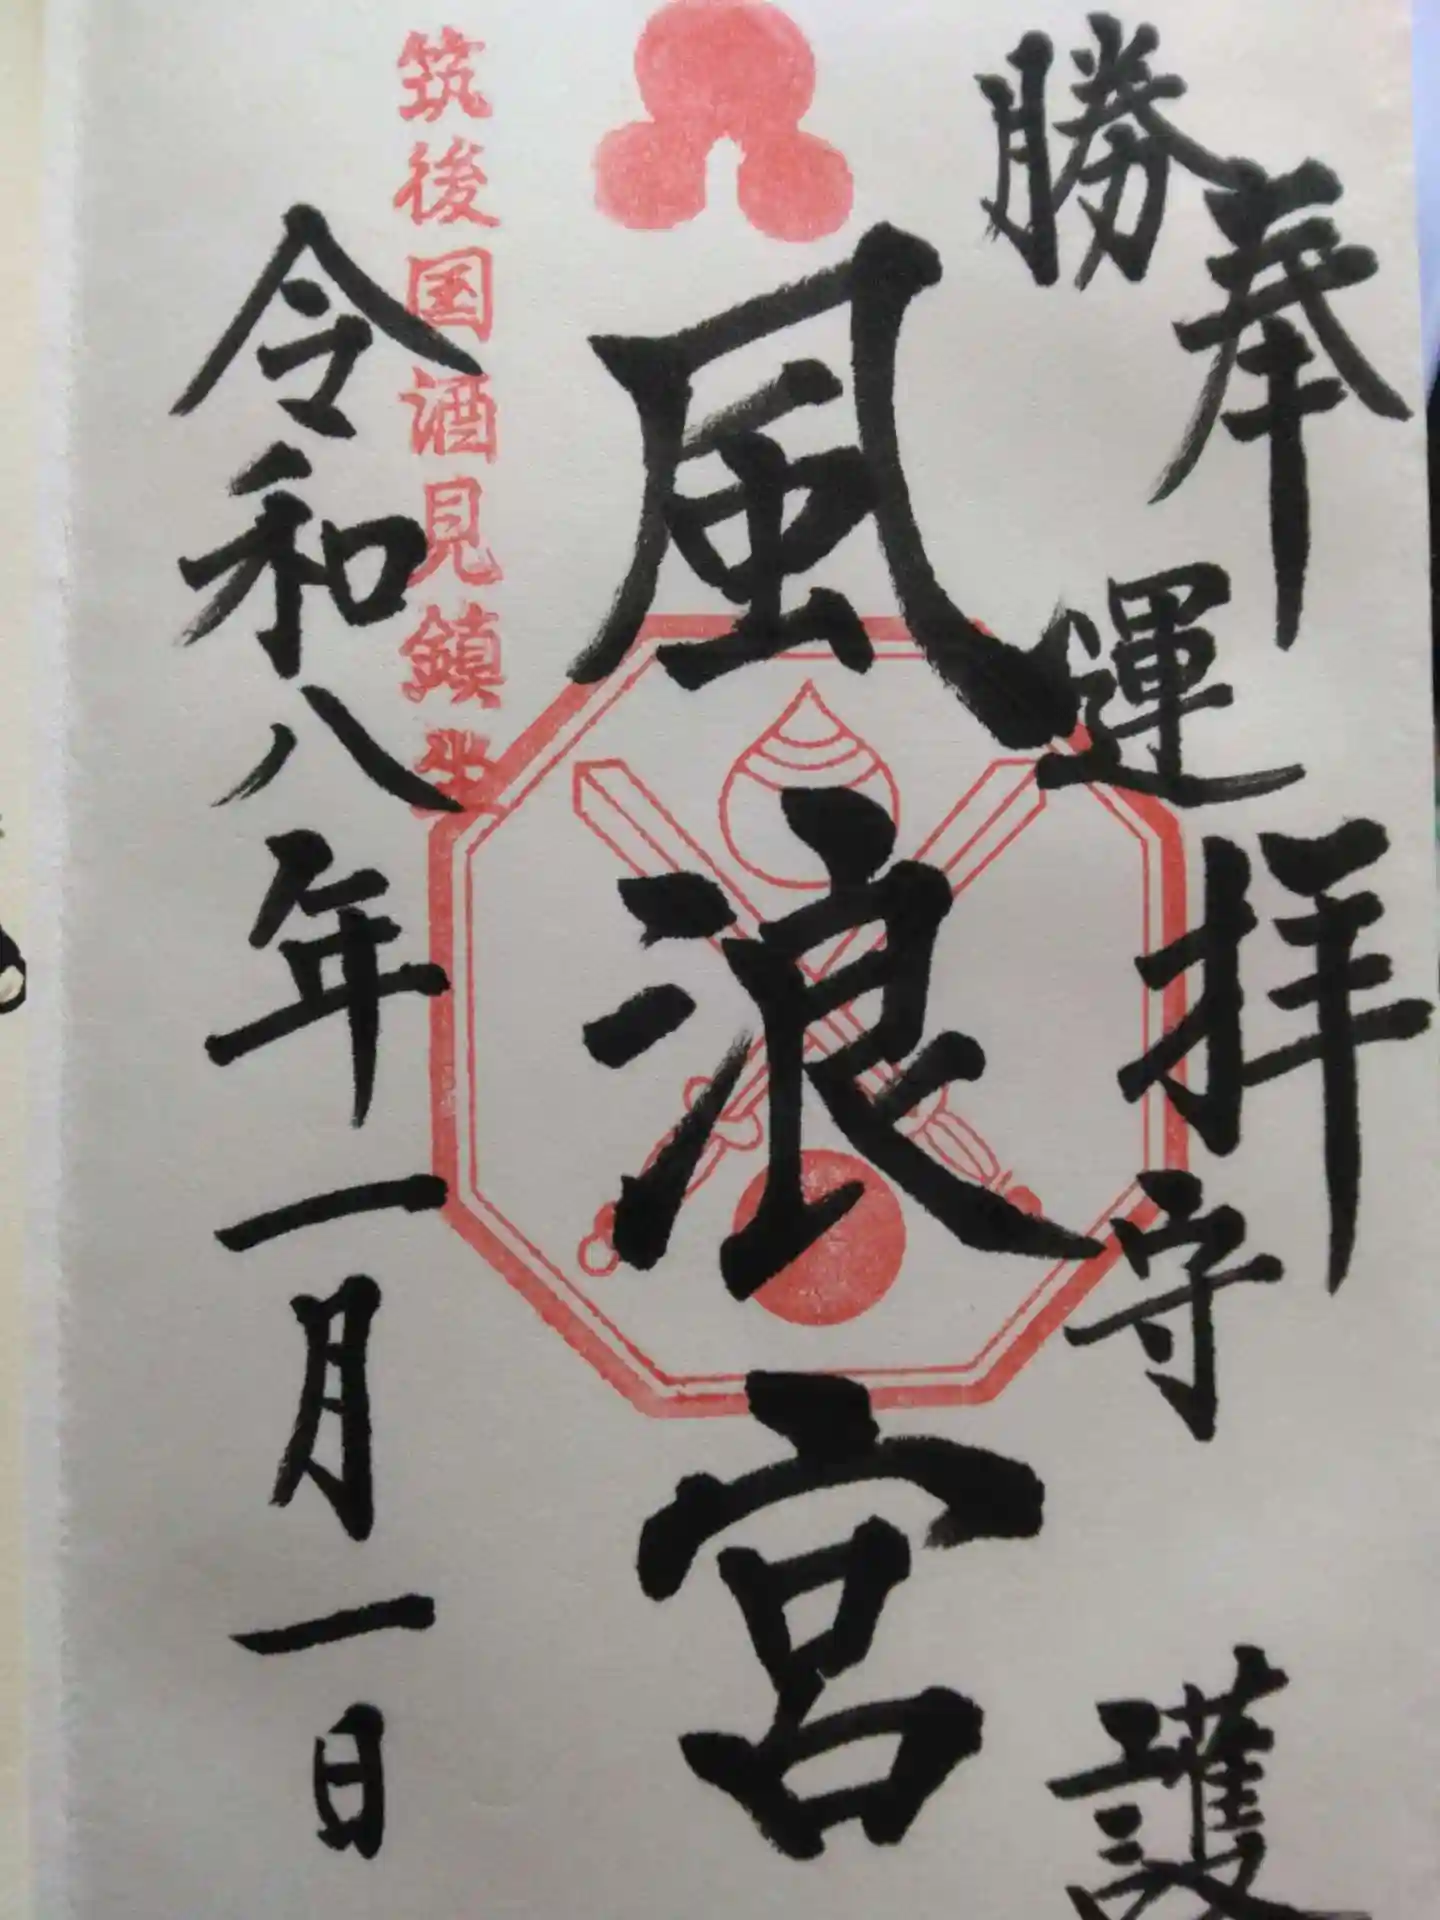 奉拝
勝運守護
風浪宮
筑後国酒見鎮坐
令和八年一月一日